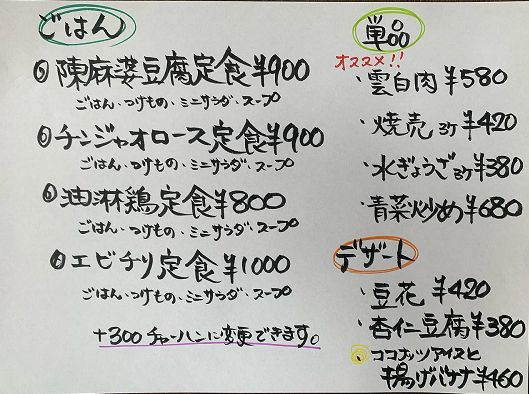 ごはん
陳麻婆豆腐定食¥900
ごはん・つけもの・ミニサラダ・スープ
チンジャオロース定食¥900
ごはん・つけもの・ミニサラダ・スープ
油淋鶏定食¥800
ごはん・つけもの・ミニサラダ・スープ
エビチリ定食¥1000
ごはん・つけもの・ミニサラダ・スープ
+300チャーハンに変更できます。
単品
オススメ!!
・雲白肉¥580
・焼売3ケ¥420
・水ぎょうざ3ケ¥380
・青菜炒め¥680
デザート
・豆花 ¥420
・杏仁豆腐¥380
・ココナッツアイスと
揚げバナナ¥460